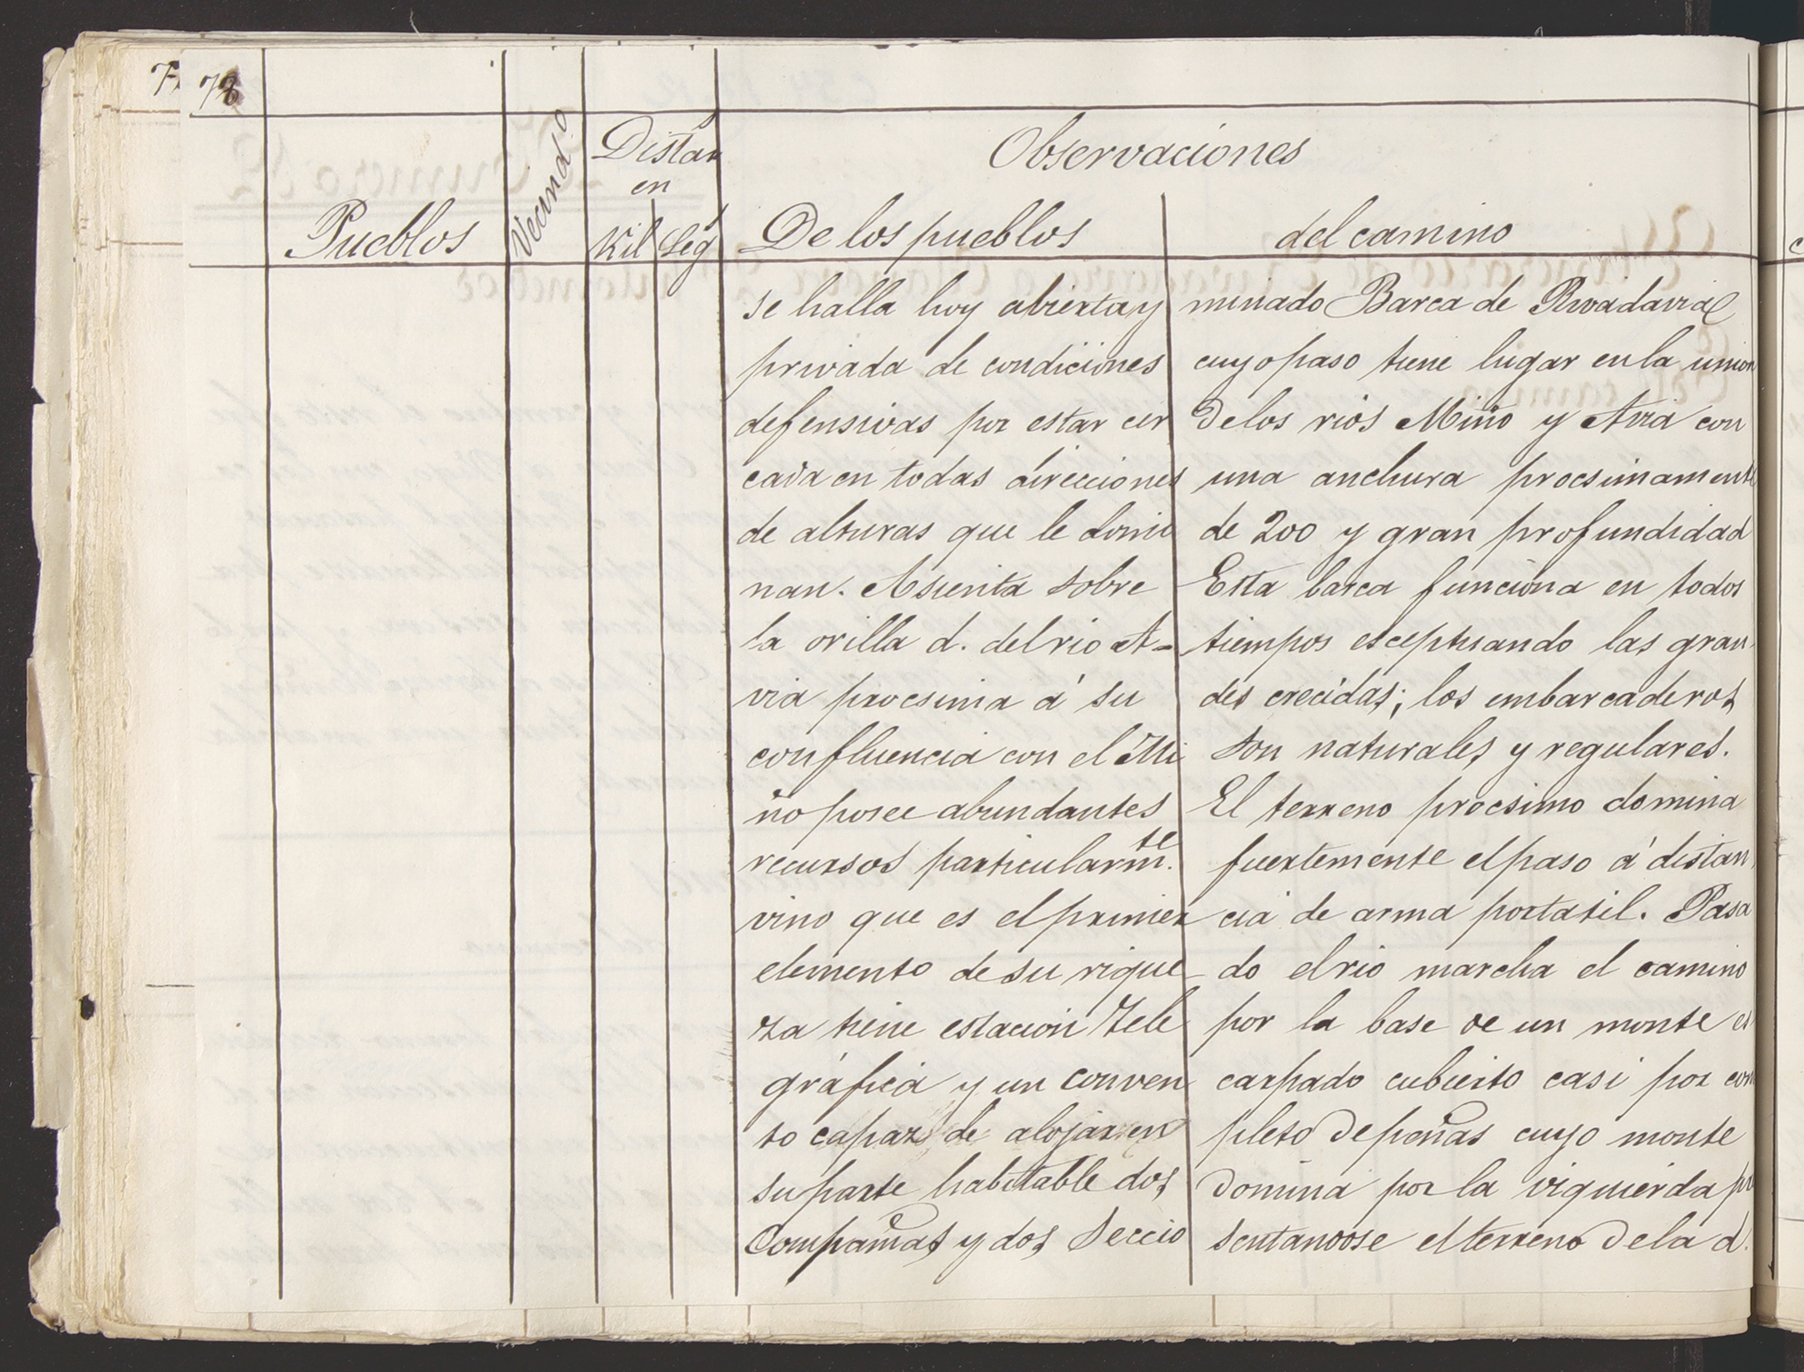 78
Observaciones
Distan
en
Pueblos
Vecind.o
Kil
Leg
De los pueblos
del camino
se halla hoy abierta y
privada de condiciones
defensivas por estar cer
cada en todas direcciones
de alturas que le domi
nan. Asienta sobre
la orilla d. del rio A-
via procsima á su
confluencia con el Mi
ño posee abundantes
recursos particularm.te
vino que es el primer
elemento de su rique
za tiene estacion tele
gráfica y un conven
to capaz de alojar en
su parte habitable dos
Compañias y dos Seccio
minado Barca de Rivadavia
cuyo paso tiene lugar en la union
de los rios Miño y Avia con
una anchura procsimamente
de 200 y gran profundidad
Esta barca funciona en todos
tiempos esceptuando las gran
des crecidas; los embarcaderos
son naturales y regulares.
El terreno procsimo domina
fuertemente el paso á distan
cia de arma portatil. Pasa
do el rio marcha el camino
por la base de un monte es
carpado cubierto casi por com
pleto de peñas cuyo monte
domina por la izquierda pre
sentandose el terreno de la d.